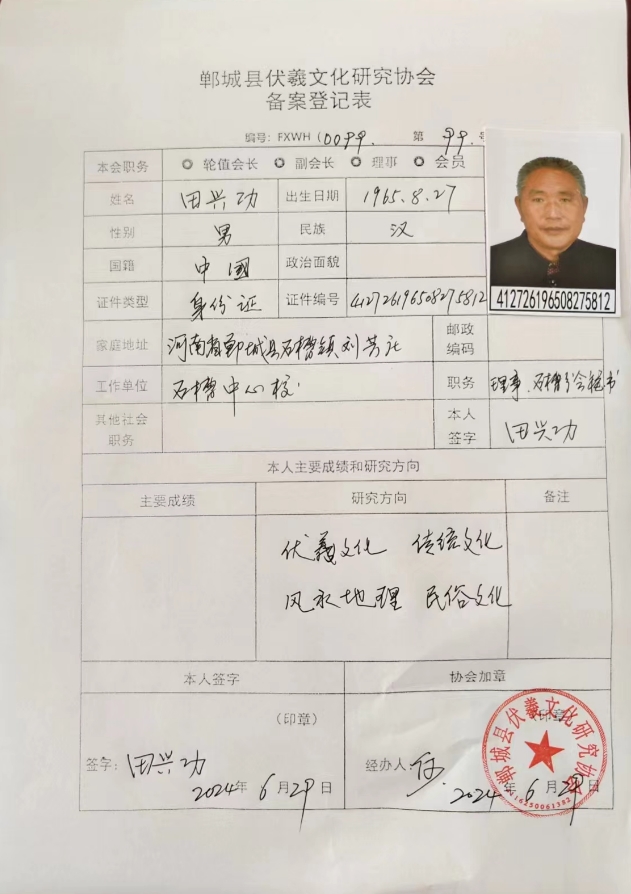 郸城县伏羲文化研究协会
备案登记表
编号: FXWH (0099. 第 99. 号
本会职务 轮值会长 副会长 理事 会员
姓名 田兴功 出生日期 1965.8.27
性别 男 民族 汉
国籍 中国 政治面貌
证件类型 身份证 证件编号 412726196508275812
412726196508275812
家庭地址 河南省郸城县石槽镇刘芳社 邮政编码
工作单位 石槽中心校. 职务 理事.石槽分会秘书
其他社会职务 本人签字 田兴功
本人主要成绩和研究方向
主要成绩 研究方向 备注
伏羲文化 传统文化
风水地理 民俗文化
本人签字 协会加章
(印章) (印章)
签字: 田兴功 经办人:
2024年 6月29日 2024年 6月29日
郸城县伏羲文化研究协会